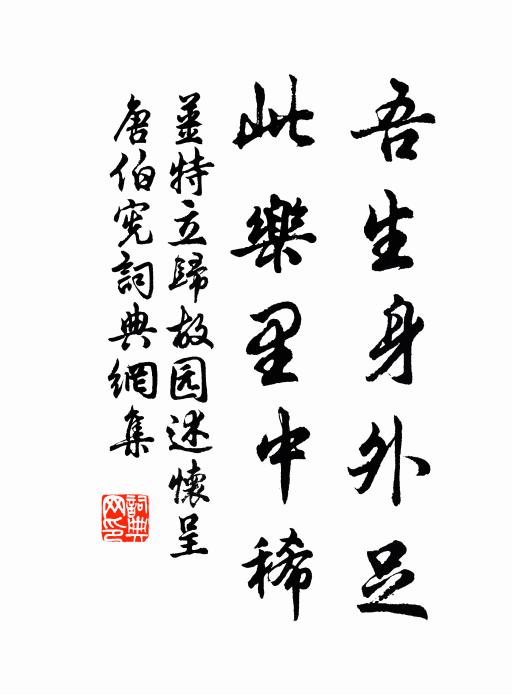 吾生身外足
此樂里中稀
姜特立歸故园述懷呈
唐伯宪詞典網集
詞典
网印